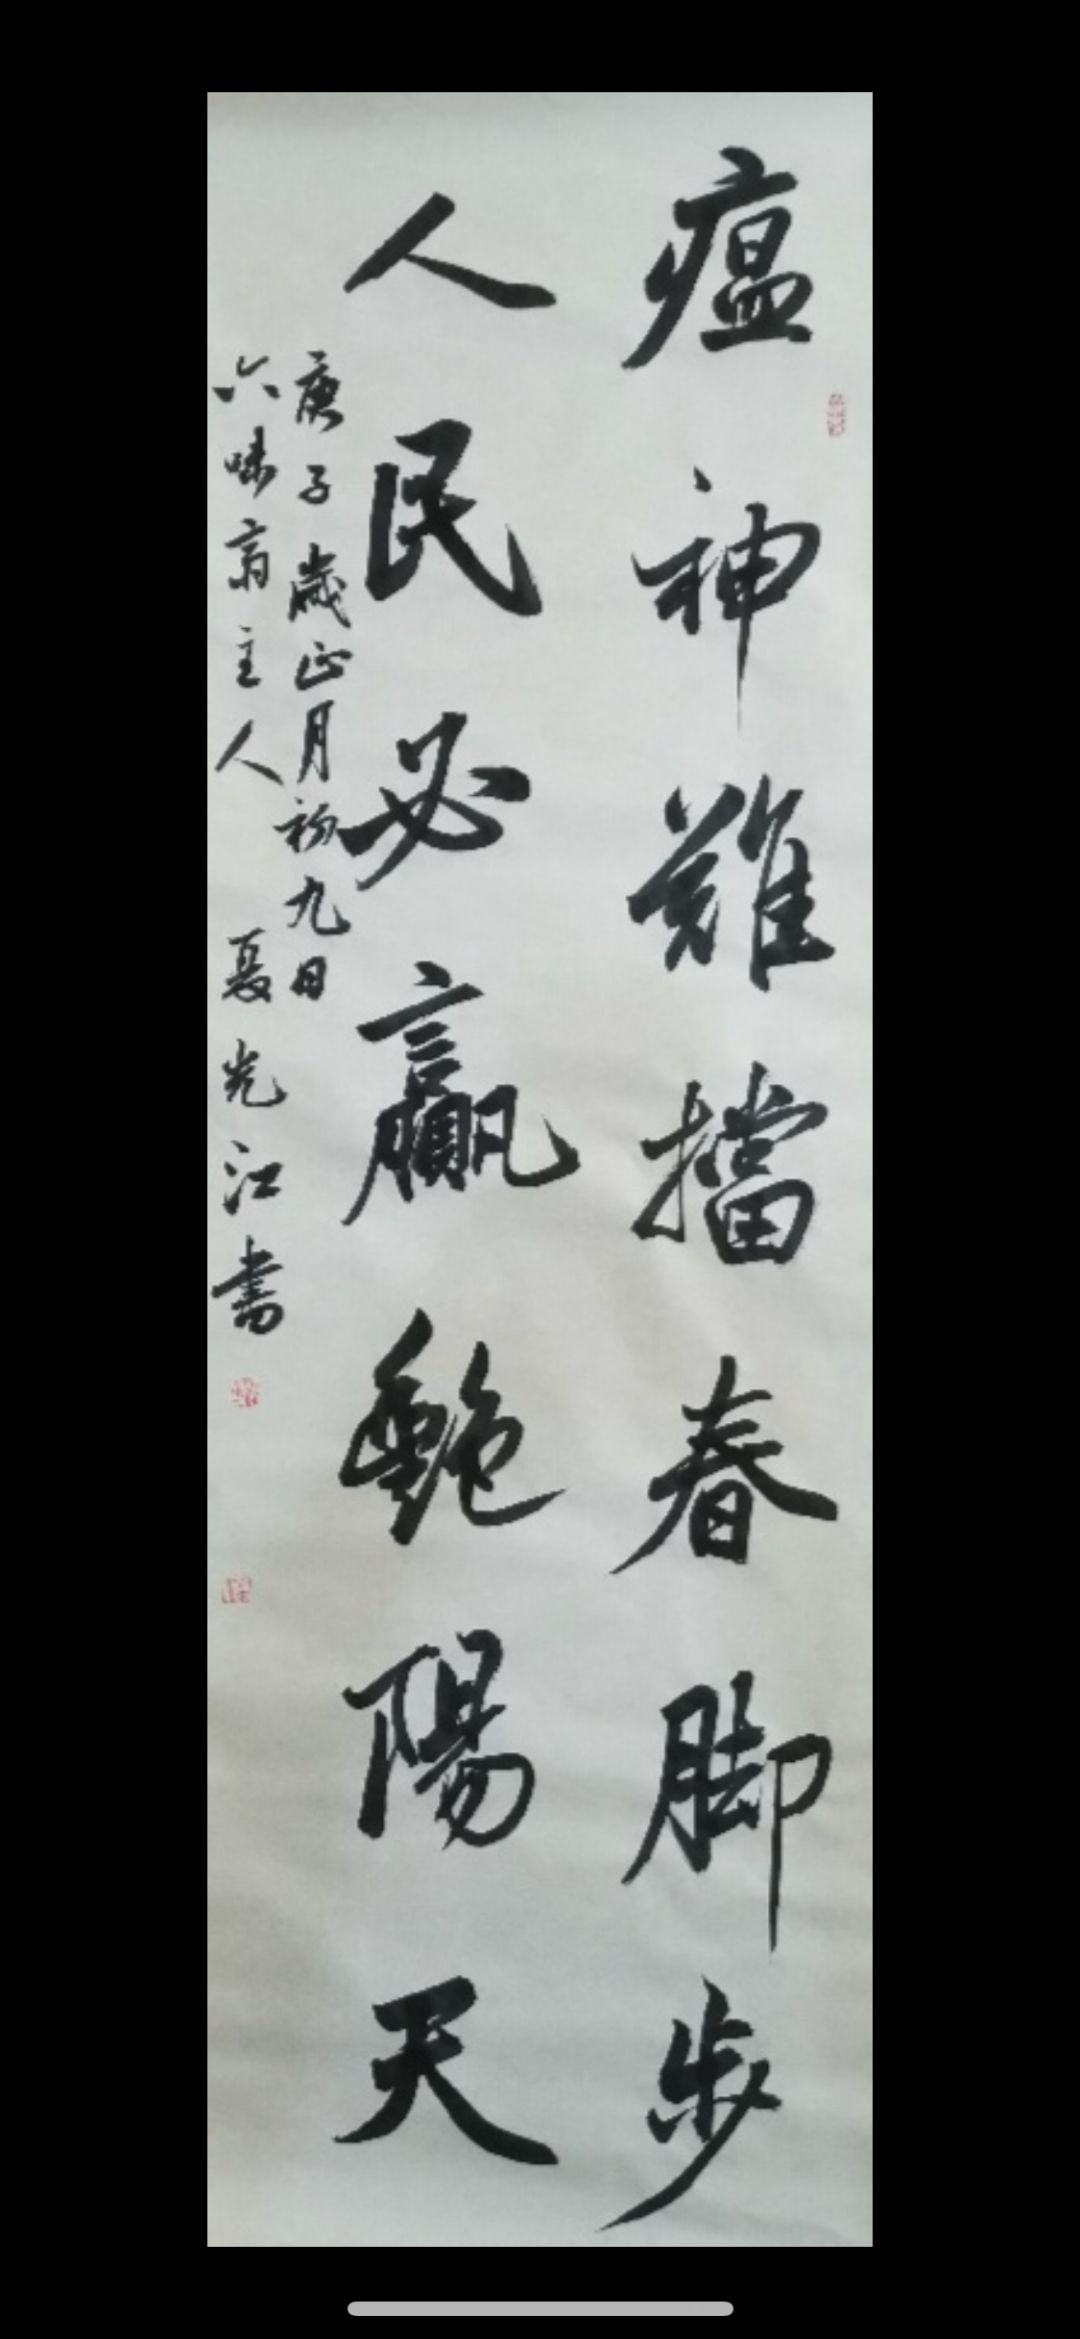 瘟神難擋春脚步
人民必贏艷陽天
庚子歲正月初九日
六味斎主人 夏光江書